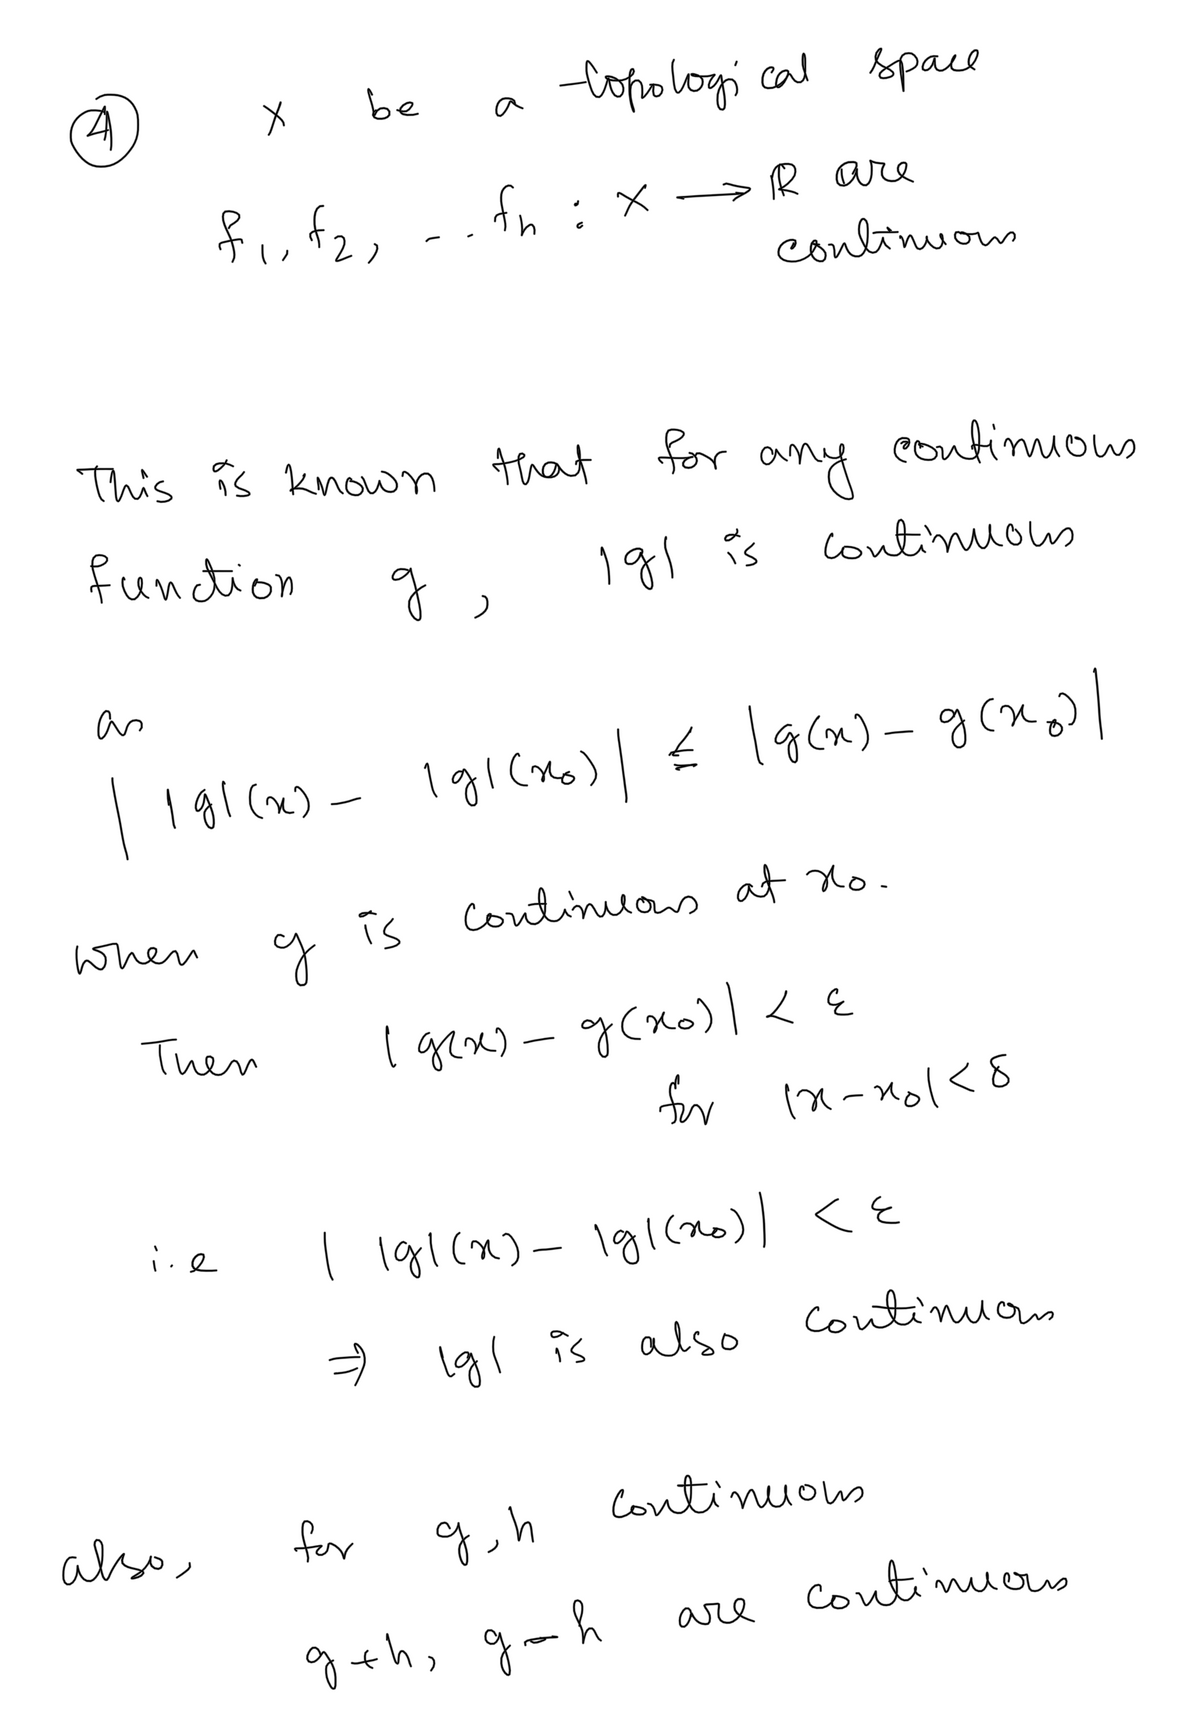 ④ X be a topological space
f₁, f₂, -.. fₙ : X ⟶ ℝ are
continuous
This is known that for any continuous
function g, |g| is continuous
as
| |g|(x) - |g|(x₀) | ≤ | g(x) - g(x₀) |
when g is continuous at x₀.
Then | g(x) - g(x₀) | < ε
for |x - x₀| < δ
i.e | |g|(x) - |g|(x₀) | < ε
⇒ |g| is also continuous
also, for g, h continuous
g+h, g-h are continuous